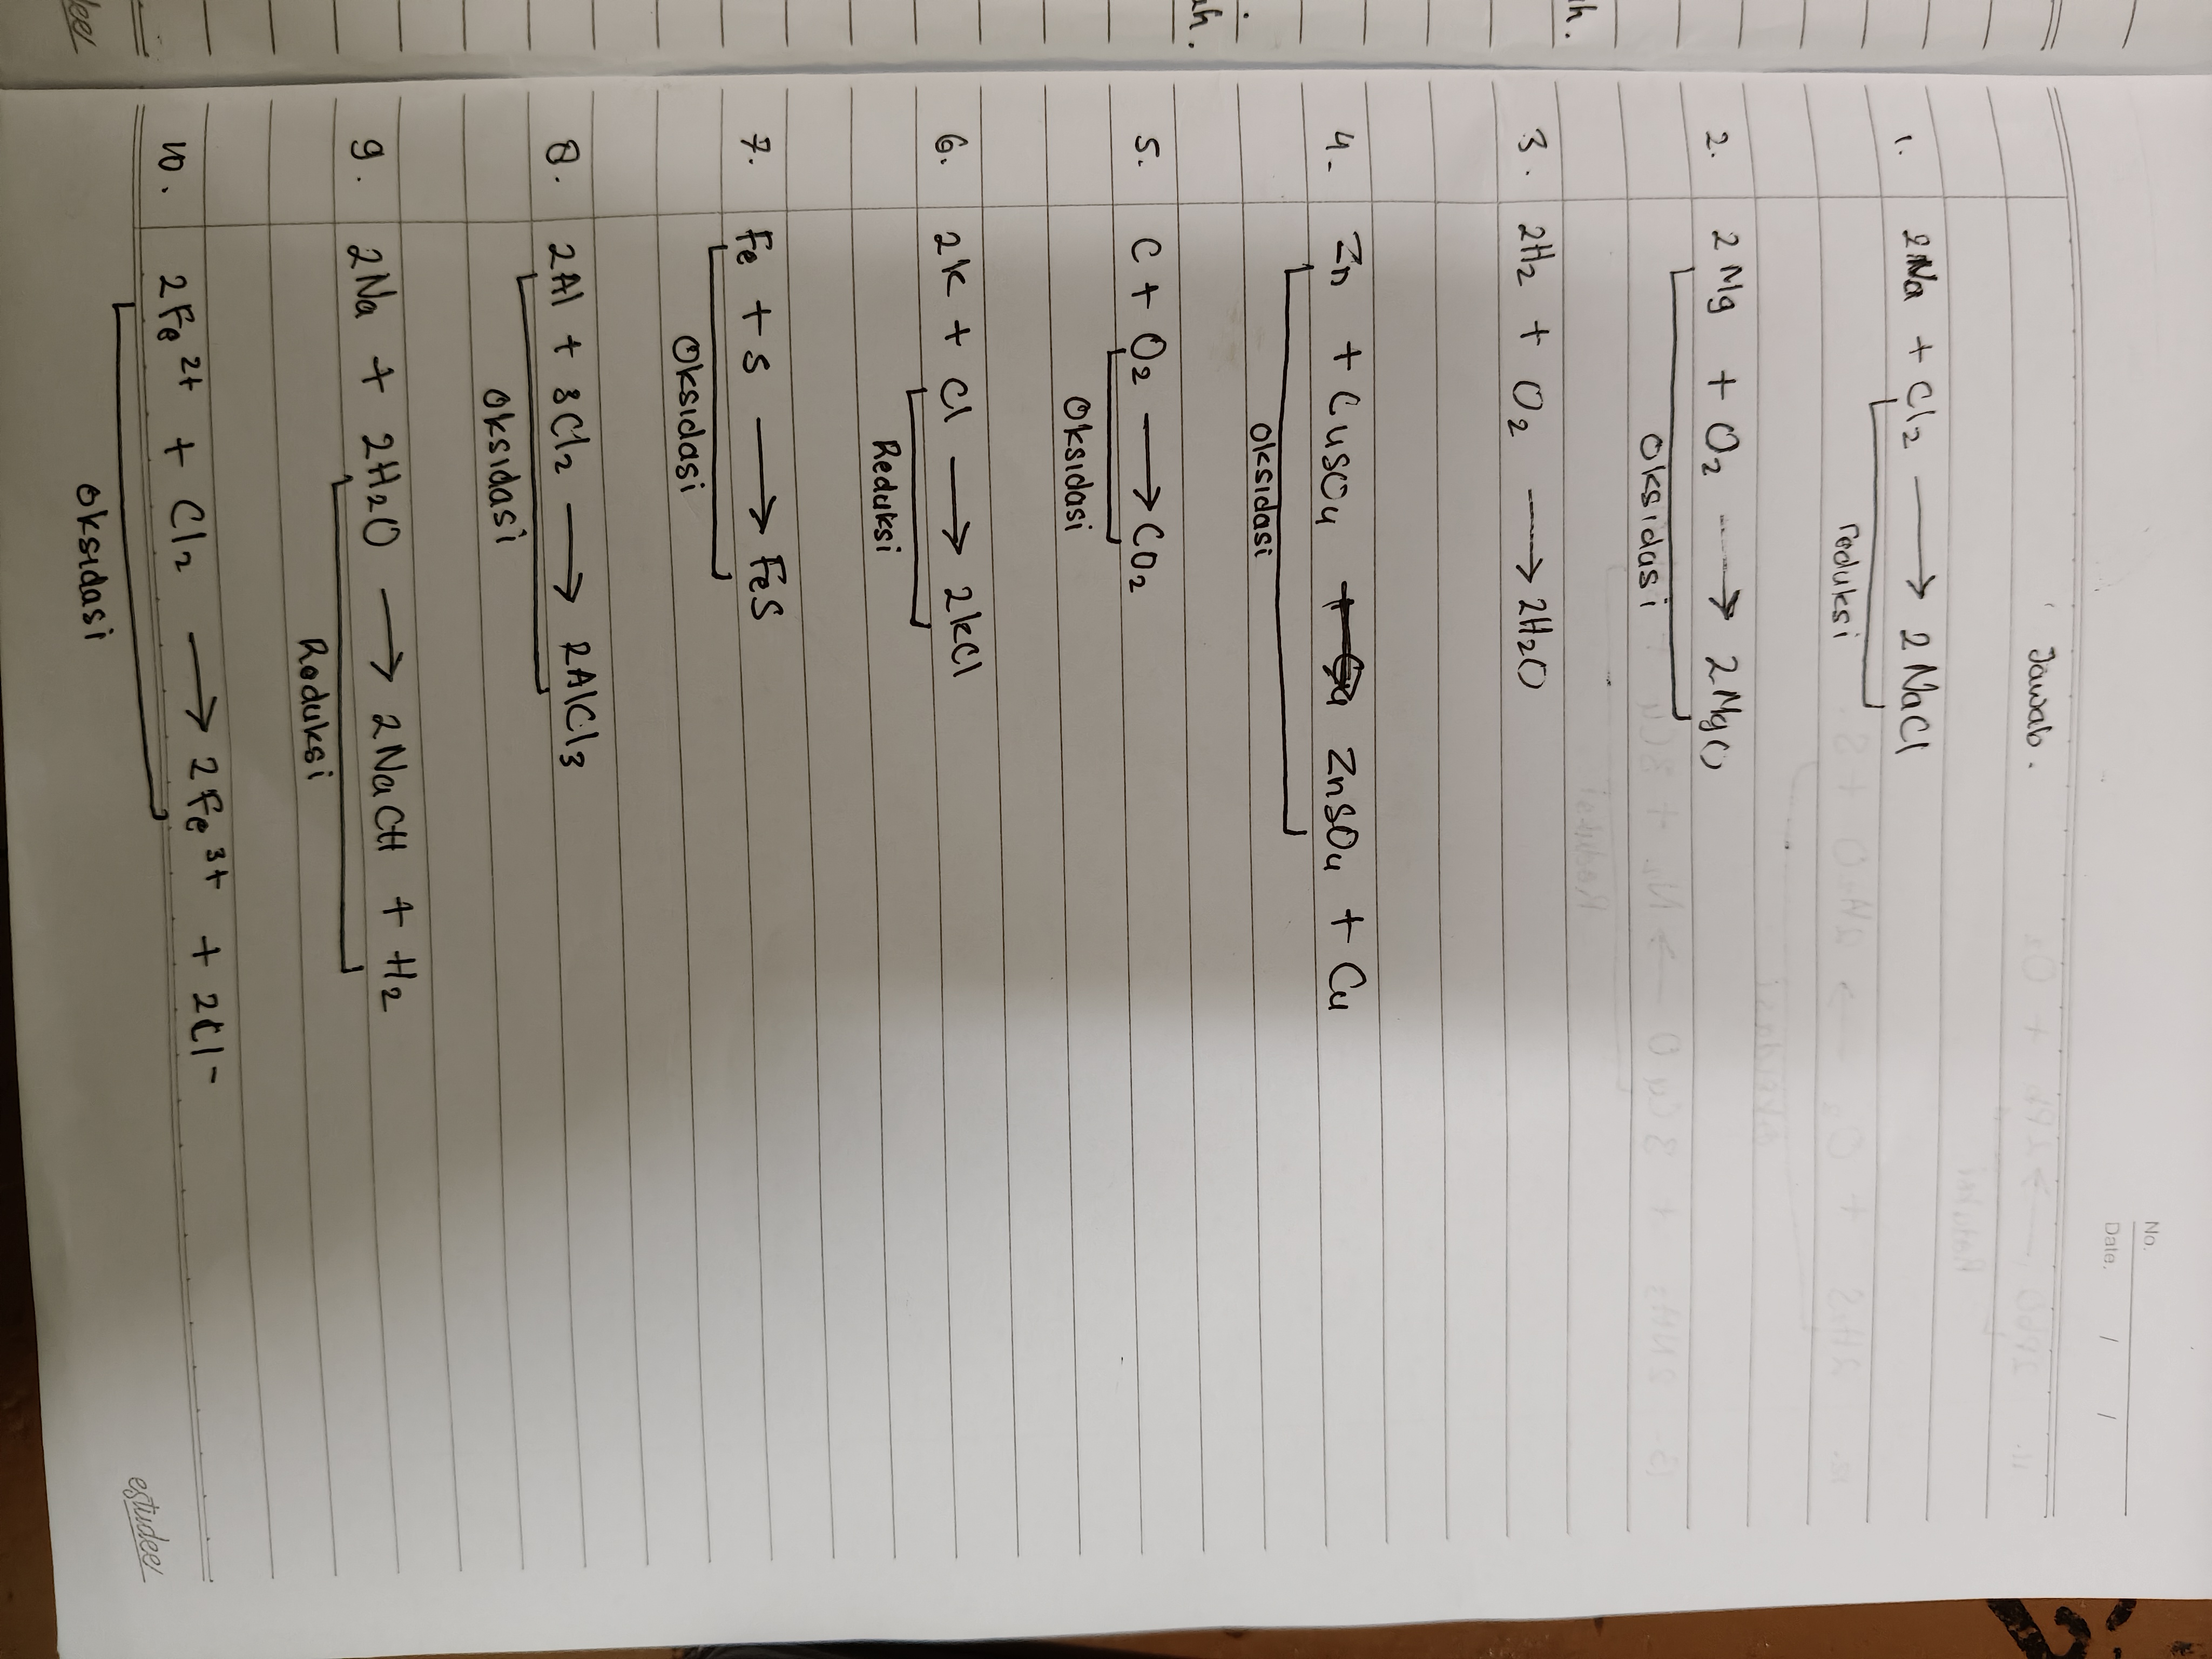 No.
Date. / /
Jawab.
1. 2Na + Cl2 → 2 NaCl
reduksi
2. 2 Mg + O2 → 2MgO
Oksidasi
3. 2H2 + O2 → 2H2O
4. Zn + CuSO4 ZnSO4 + Cu
Oksidasi
5. C + O2 → CO2
Oksidasi
6. 2K + Cl → 2KCl
Reduksi
7. Fe + S → FeS
Oksidasi
8. 2Al + 3Cl2 → 2AlCl3
Oksidasi
9. 2Na + 2H2O → 2NaCH + H2
Reduksi
10. 2Fe2+ + Cl2 → 2Fe3+ + 2Cl-
Oksidasi
estudee